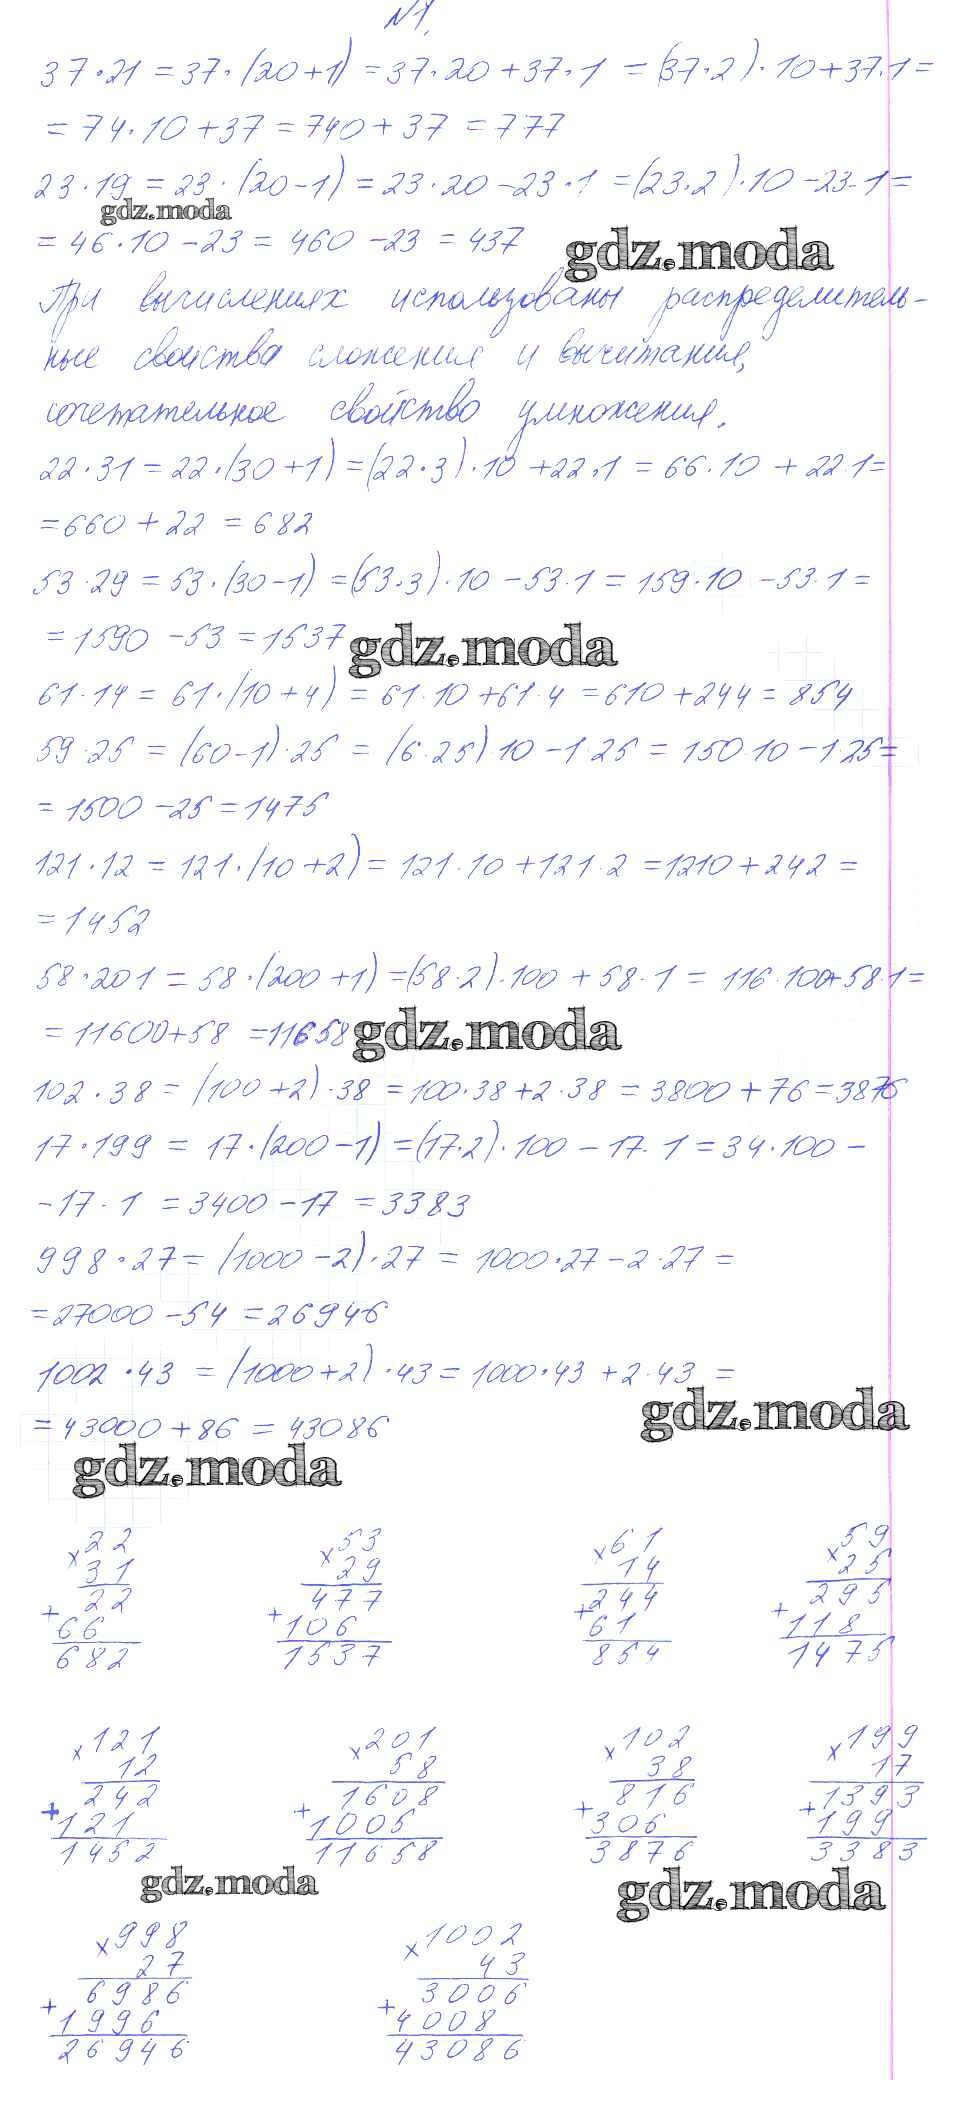 №1.
37·21 = 37·(20+1) = 37·20+37·1 = (37·2)·10+37·1 =
= 74·10+37 = 740+37 = 777
23·19 = 23·(20-1) = 23·20-23·1 = (23·2)·10-23·1 =
gdz.moda
= 46·10-23 = 460-23 = 437
gdz.moda
При вычислениях использованы распределитель-
ные свойства сложения и вычитания,
сочетательное свойство умножения.
22·31 = 22·(30+1) = (22·3)·10+22·1 = 66·10+22·1=
=660+22 = 682
53·29 = 53·(30-1) = (53·3)·10-53·1 = 159·10-53·1 =
= 1590-53 = 1537
gdz.moda
61·14 = 61·(10+4) = 61·10+61·4 = 610+244 = 854
59·25 = (60-1)·25 = (6·25)10-1·25 = 150·10-1·25=
= 1500-25 = 1475
121·12 = 121·(10+2) = 121·10+121·2 = 1210+242 =
= 1452
58·201 = 58·(200+1) = (58·2)·100+58·1 = 116·100+58·1 =
= 11600+58 = 11658
gdz.moda
102·38 = (100+2)·38 = 100·38+2·38 = 3800+76 = 3876
17·199 = 17·(200-1) = (17·2)·100-17·1 = 34·100-
-17·1 = 3400-17 = 3383
998·27 = (1000-2)·27 = 1000·27-2·27 =
= 27000-54 = 26946
1002·43 = (1000+2)·43 = 1000·43+2·43 =
gdz.moda
= 43000+86 = 43086
gdz.moda
×22 ×53 ×61 ×59
31 29 14 25
22 477 244 295
+66 +106 +61 +118
682 1537 854 1475
×121 ×201 ×102 ×199
12 58 38 17
242 1608 816 1393
+121 +1005 +306 +199
1452 11658 3876 3383
gdz.moda gdz.moda
×998 ×1002
27 43
6986 3006
+1996 +4008
26946 43086